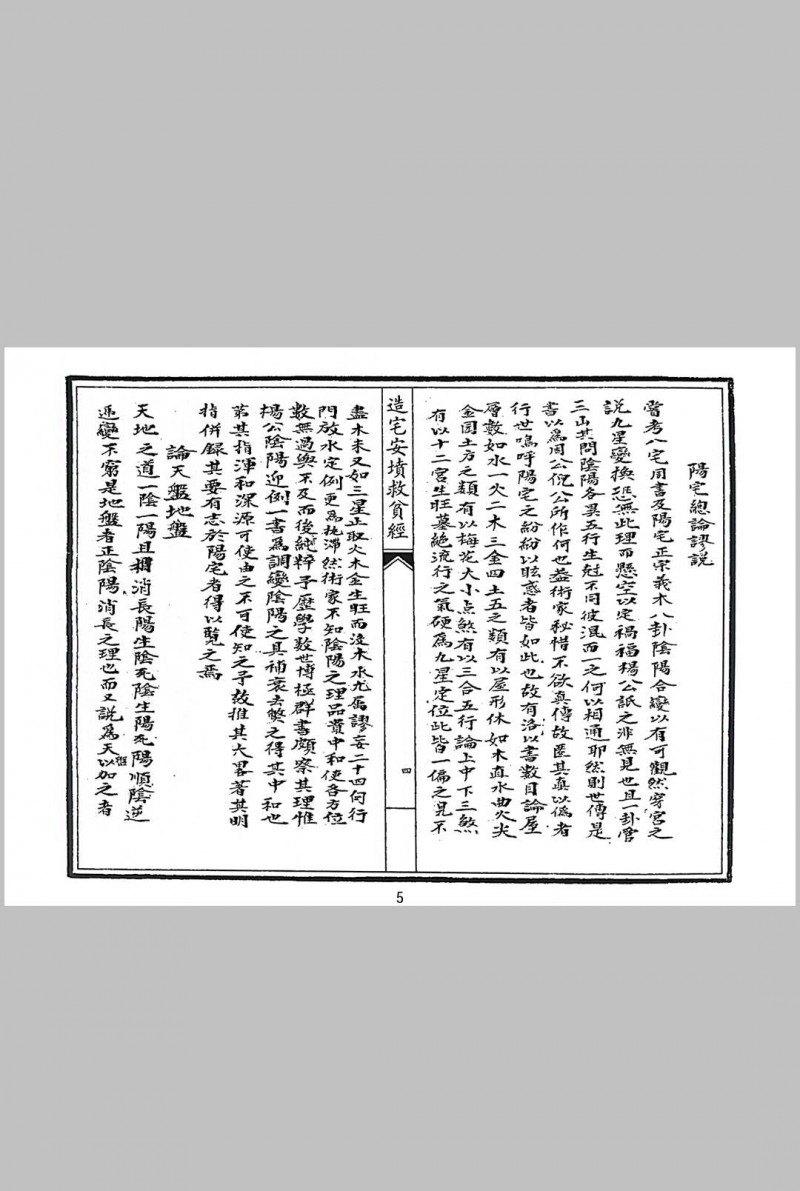 陽宅總論謬說
嘗考八宅用書及陽宅正宗義木八卦陰陽合變以有可觀然穿宮之
說九星變換恐無此理而懸空以定禍福楊公詆之非無見也且一卦管
三山其間陰陽各異五行生尅不同彼混而一之何以相通耶然則世傳是
書以為周公倪公所作何也盖術家秘惜不欲真傳故匿其真以偽者
行世嗚呼陽宅之紛紛以眩惑者皆如此也故有洛以書数目論屋
層數如水一火二木三金四土五之類有以屋形休如木直水曲火尖
金圓土方之類有以梅花大小点煞有以三合五行論上中下三煞
有以十二宮生旺墓絶流行之氣硬為九星定位此皆一偏之見不
造宅安墳救貧經
四
盡木未又如三星止取火木金生旺而沒木水尤属謬妄二十四向行
門放水定例更為执滞然術家不知陰陽之理品貴中和使各方位
数無過與不及而後純粹予歷學数世博極群書頗察其理惟
楊公陰陽迎例一書為調變陰陽之具補衰去弊之得其中和也
第其指渾和深源可使由之不可使知之予故推其大畧著其明
指併録其要有志於陽宅者得以覧之焉
論天盤地盤
天地之道一陰一陽且相消長陽生陰死陰生陽死陽順陰逆
逓變不窮是地盤者正陰陽消長之理也而又說為天以加之者
5